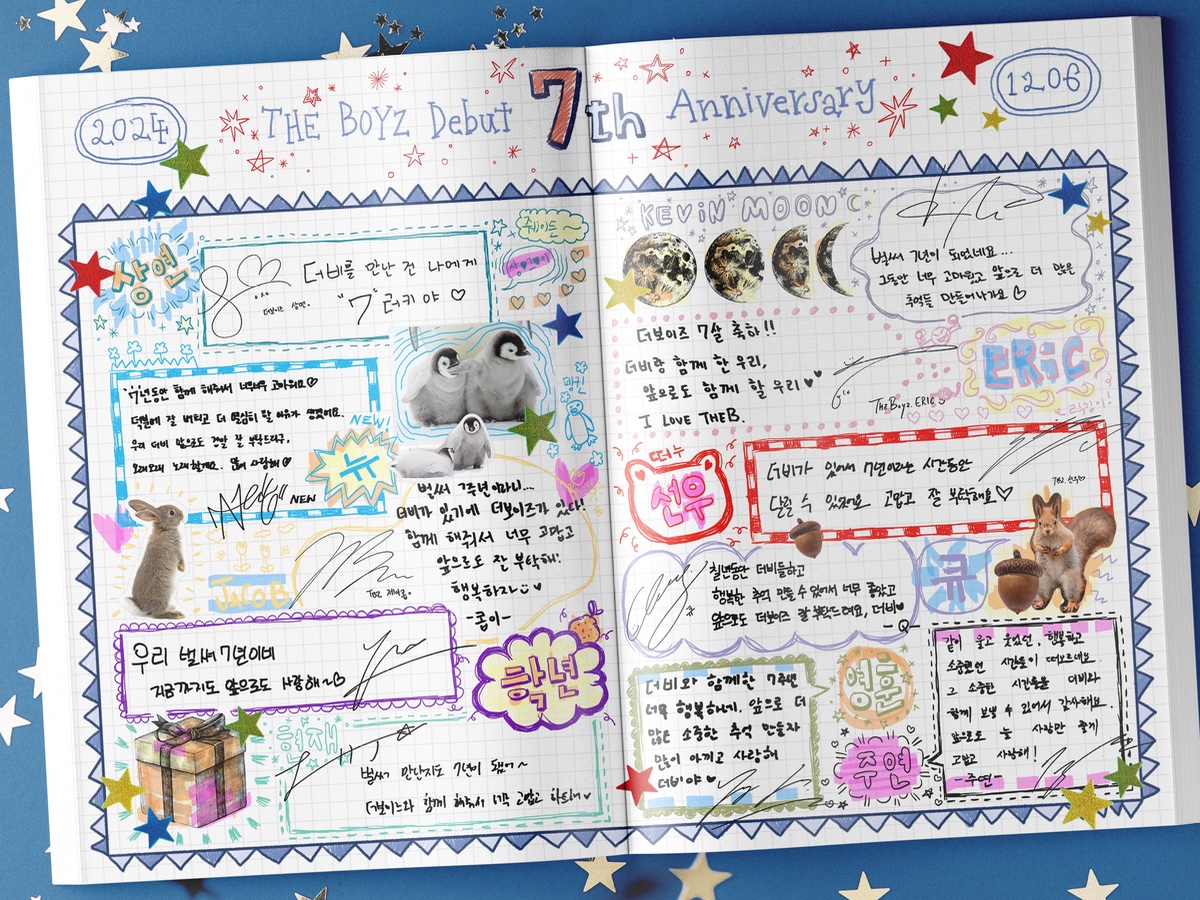 2024
THE BOYZ Debut 7th Anniversary
12.06
상연
더비를 만난 건 나에게
"7" 럭키야 ♡
더보이즈 상연.
줴이든~
7년동안 함께 해주셔서 너무너무 고마워요♡
덕분에 잘 버티고 더 열심히 할 이유가 생겼어요.
우리 더비 앞으로도 정말 잘 부탁드리구,
오래오래 노래할게요. 많이 사랑해♡
NEW
NEW!
뉴
펭귄
JACOB
벌써 7주년이라니...
더비가 있기에 더보이즈가 있다!
함께 해줘서 너무 고맙고
앞으로도 잘 부탁해!
행복하자
-콥이-
TBZ 제이콥.
우리 벌써 7년이네
지금까지도 앞으로도 사랑해~♡
학년
현재
벌써 만난지도 7년이 됐어~
더보이즈와 함께 해줘서 너무 고맙고 사랑해♥
KEVIN MOON
벌써 7년이 되었네요...
그동안 너무 고마웠고 앞으로 더 많은
추억들 만들어나가요♡
더보이즈 7살 축하!!
더비랑 함께 한 우리,
앞으로도 함께 할 우리♥♥
I LOVE THEB.
The Boyz. ERIC
ERIC
떠누
선우
더비가 있어서 7년이라는 시간동안
달릴 수 있었어요 고맙고 잘 부탁해요♡
TBZ. 선우♡
칠년동안 더비들하고
행복한 추억 만들 수 있어서 너무 좋았고
앞으로도 더보이즈 잘 부탁드려요, 더비♥
-Q
큐
더비와 함께한 7주년
너무 행복하기. 앞으로 더
많은 소중한 추억 만들자
많이 아끼고 사랑해
더비야♥
영훈
주연
같이 울고 웃었던, 행복하고
소중했던 시간들이 떠오르네요.
그 소중한 시간들을 더비와
함께 보낼 수 있어서 감사해요.
앞으로도 늘 사랑만 주기
고맙고 사랑해!
-주연-